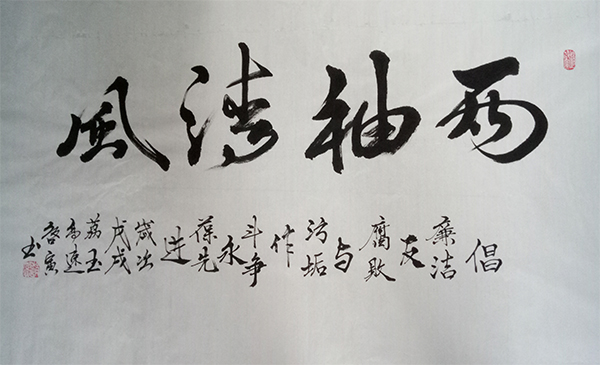 两袖清风
倡
廉洁
反
腐败
与
污垢
作
斗争
永
葆先
进
岁次
戊戌
荔玉
高速
容寅
书